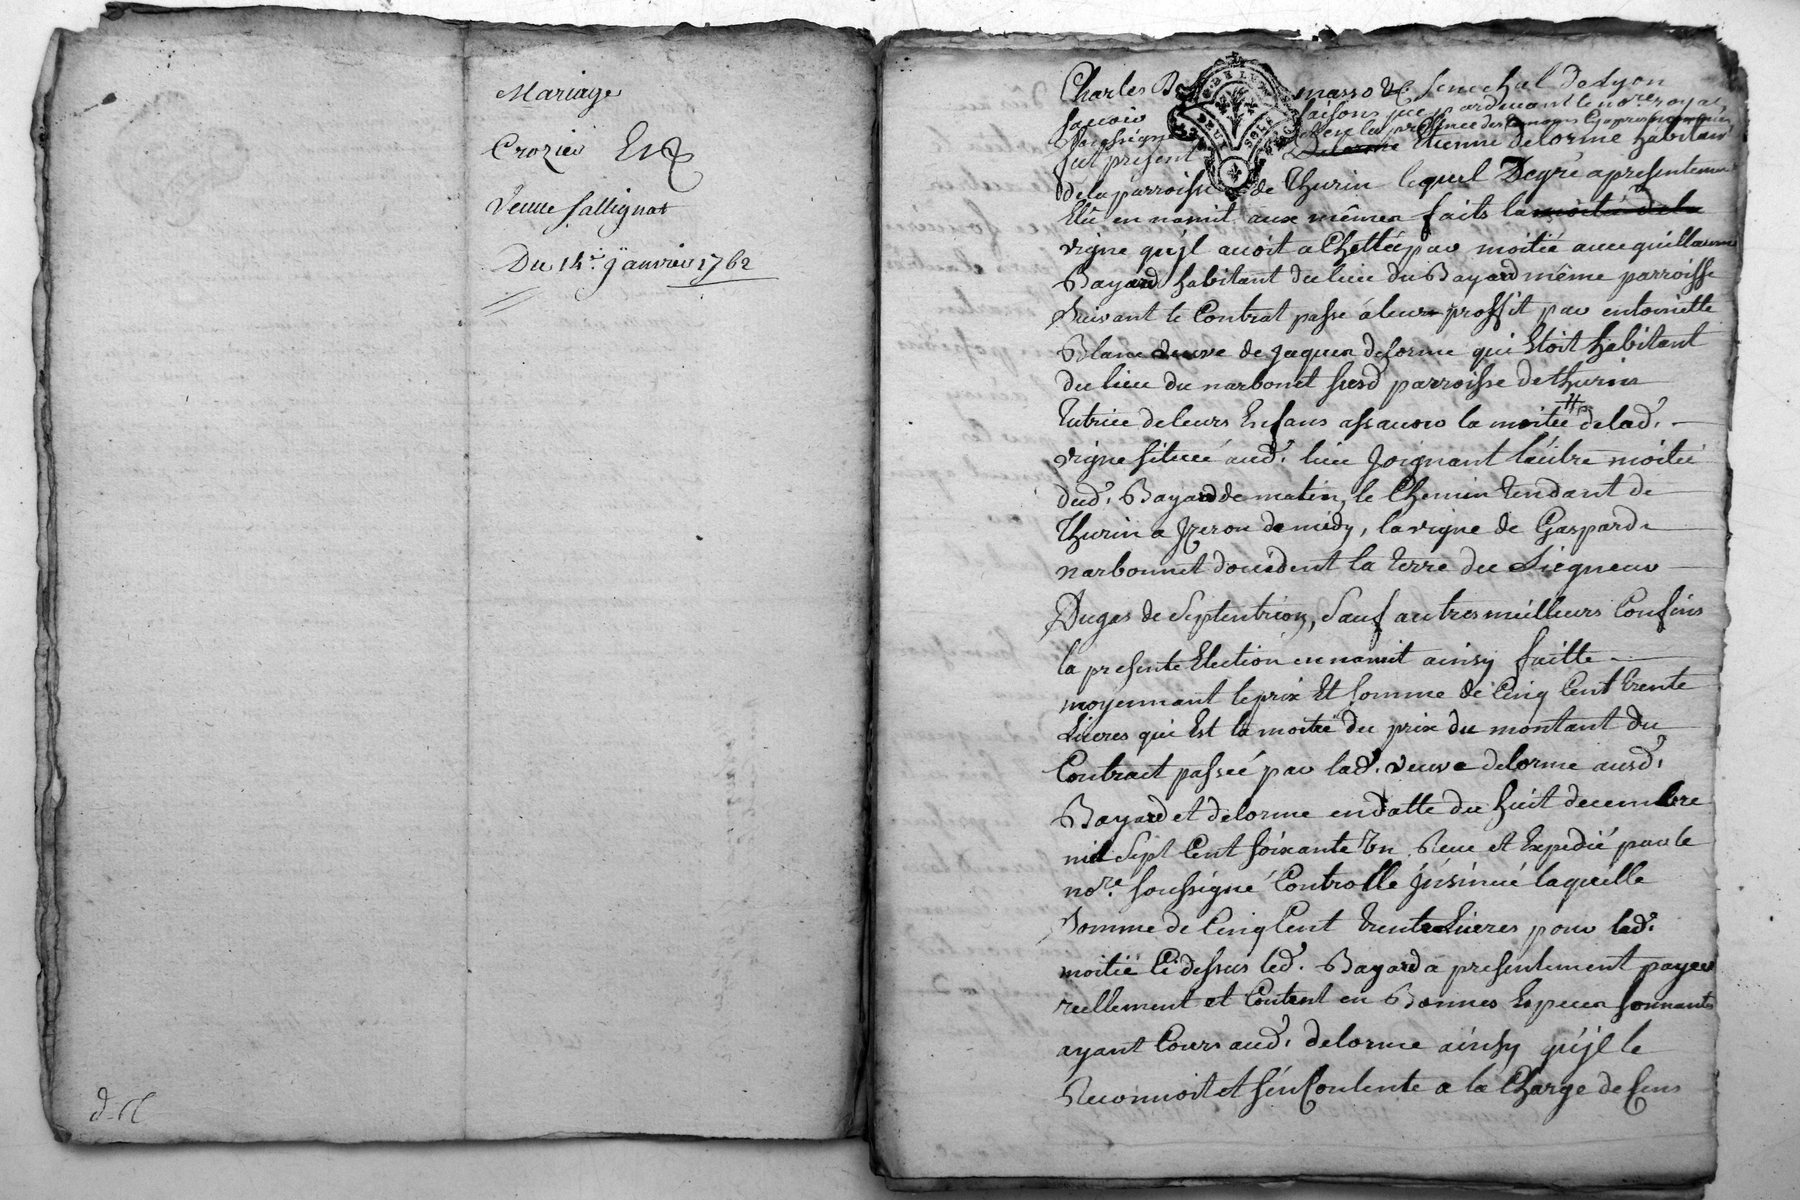 Mariage
Crozier Et
Veuve fallignat
Du 14e. janvier 1762
Charles B masso &c senechal de Lyon
scavoir faisons que pardevant le nore. royal
soussigné et en la presence des temoins cy apres nommés
fut present Delorme Etienne delorme habitant
de la parroisse de thurin lequel Degré a presentement
Elû en namit aux mêmes faits la moitié de la
vigne qu'jl avoit achettée par moitié avec guillaume
Bayard habitant du lieu du Bayard même parroisse
suivant le Contrat passé à leur proffit par entoinette
Blanc veuve de jaques delorme qui Etoit habitant
du lieu du narbonet susd parroisse de thurin
tutrice de leurs Enfans assavoir la moitié de lad.
vigne située aud. lieu joignant l'autre moitié
dud. Bayard de matin, le Chemin tendant de
thurin a jzeron de midy, la vigne de Gaspard
narbonnet d'occident la terre du Siegneur
Dugas de Septentrion, sauf autres meilleurs Confins
la presente Election en namit ainsy faitte
moyennant le prix Et somme de Cinq Cent trente
Livres qui Est la moitié du prix du montant du
Contract passée par lad. veuve delorme ausd.
Bayard et delorme en datte du huit decembre
mil Sept Cent soixante Un Receu et Expedié par le
nore. soussigné Controllé jnsinué laquelle
somme de Cinq Cent trente Livres pour lad.
moitié Ci dessus led. Bayard a presentement payée
reellement et Contant en Bonnes Especes sonnantes
ayant Cours aud. delorme ainsy qu'jl le
Reconnoit et s'en Contente a la Charge de sens